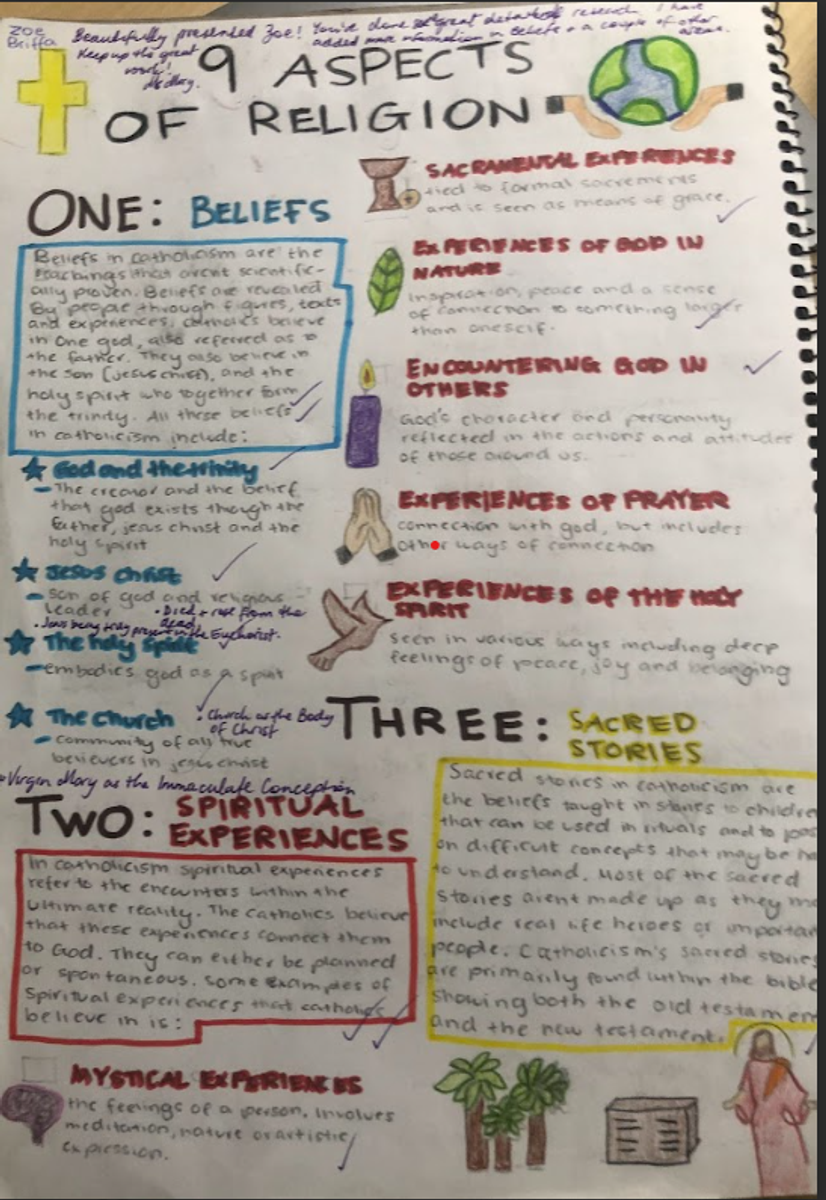 Zoe
Briffa
Beautifully presented Zoe! You've done great detailed research. I have
added more information in Beliefs + a couple of other
areas.
Keep up the great
work!
9 ASPECTS
OF RELIGION
ONE: BELIEFS
Beliefs in catholicism are the
teachings that arent scientific-
ally proven. Beliefs are revealed
By people through figures, texts
and experiences, catholics believe
in one god, also referred as to
the father. They also believe in
the son (jesus christ), and the
holy spirit who together form
the trinity. All these beliefs
in catholicism include:
God and the trinity
- The creator and the belief
that god exists though the
father, jesus christ and the
holy spirit
Jesus Christ
- son of god and religious
leader
• Died + rose from the
dead
• Jesus being truly present in the Eucharist.
The holy spirit
- embodies god as a spirit
The church
• Church as the Body
of Christ
- community of all true
believers in jesus christ
• Virgin Mary as the Immaculate Conception
TWO: SPIRITUAL
EXPERIENCES
In catholicism spiritual experiences
refer to the encounters within the
ultimate reality. The catholics believe
that these experiences connect them
to God. They can either be planned
or spontaneous. some examples of
Spiritual experiences that catholics
believe in is:
MYSTICAL EXPERIENCES
the feelings of a person, involves
meditation, nature or artistic
expression.
SACRAMENTAL EXPERIENCES
tied to formal sacrements
and is seen as means of grace.
EXPERIENCES OF GOD IN
NATURE
Inspiration, peace and a sense
of connection to something larger
than oneself.
ENCOUNTERING GOD IN
OTHERS
God's character and personality
reflected in the actions and attitudes
of those around us.
EXPERIENCES OF PRAYER
connection with god, but includes
other ways of connection
EXPERIENCES OF THE HOLY
SPIRIT
seen in various ways including deep
feelings of peace, joy and belonging
THREE: SACRED
STORIES
Sacred stories in catholicism are
the beliefs taught in stories to childre
that can be used in rituals and to pass
on difficult concepts that may be ha
to understand. Most of the sacred
stories arent made up as they m
include real life heroes or importan
people. Catholicism's sacred stories
are primarily found within the bible
showing both the old testamen
and the new testament.